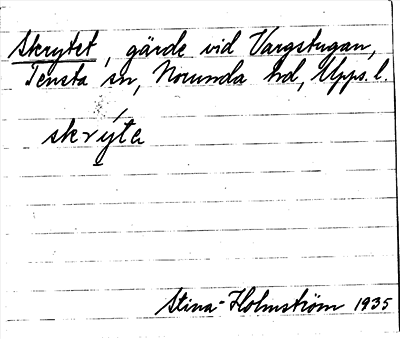 Skrytet, gärde vid Vargstugan,
Tensta sn, Norunda hd, Upps. l.
skrýta
Stina Holmström 1935